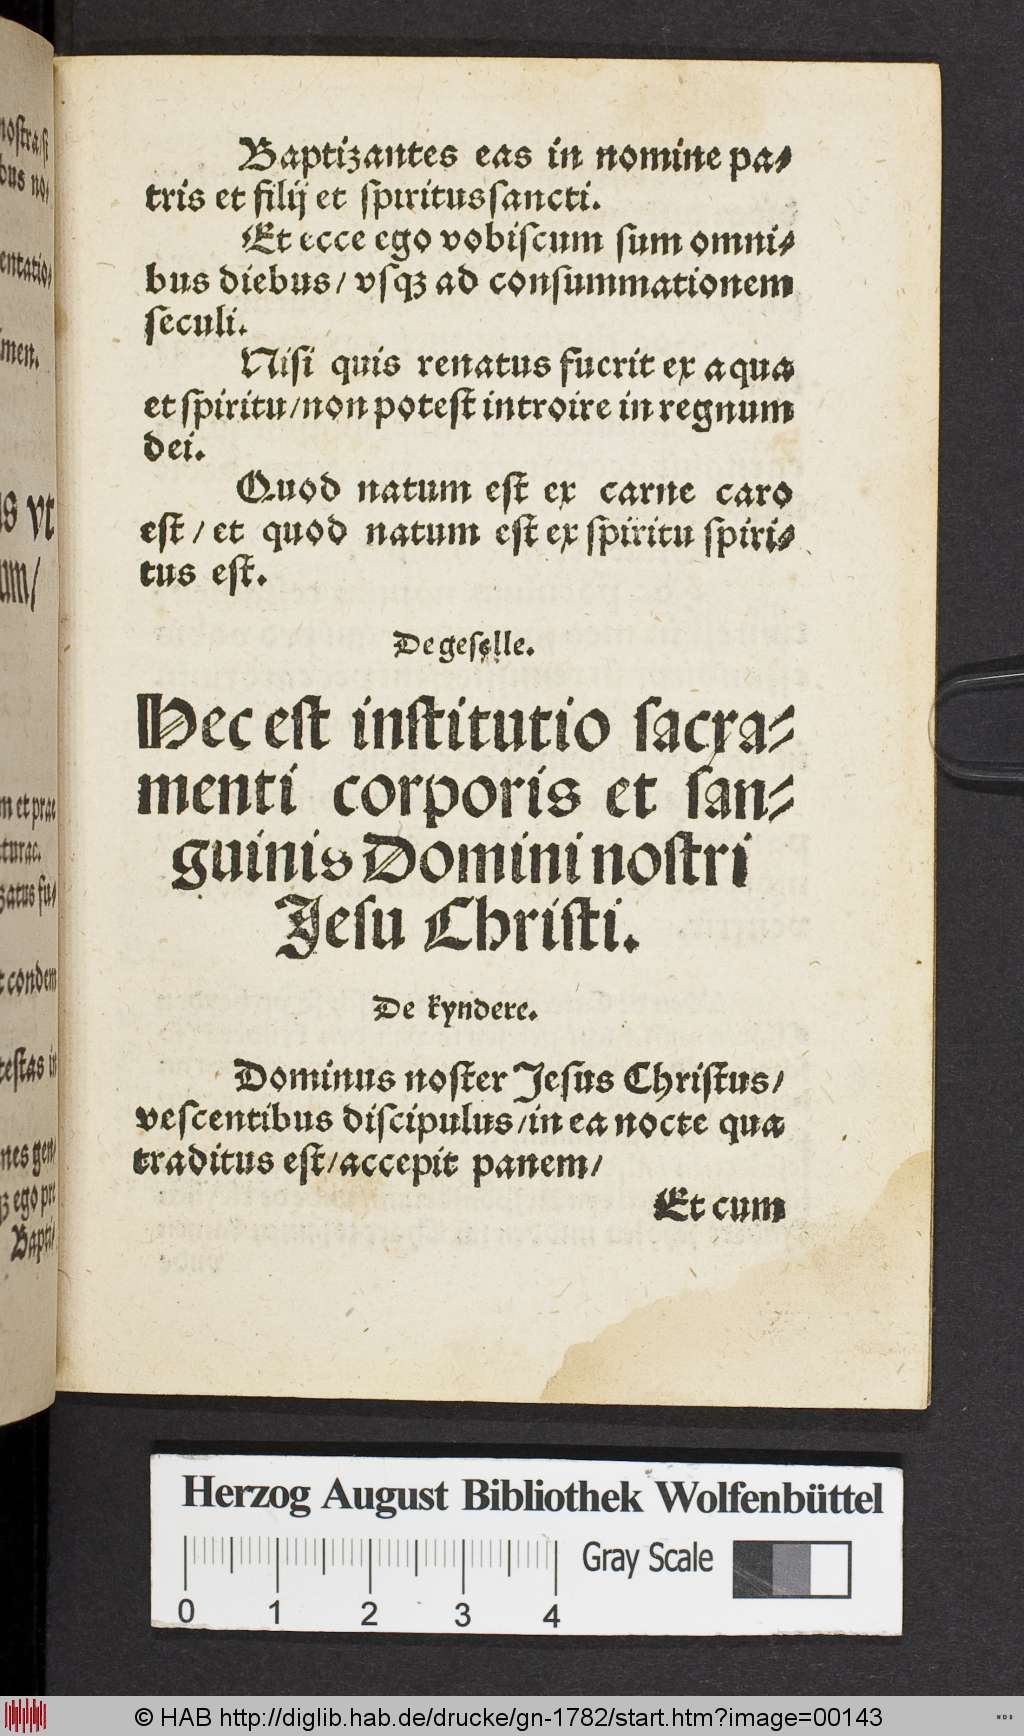 noſtra/ſi
bus no⸗
entatio⸗
men.
is vt
um/
m et prae
turae.
zatus fu⸗
t condem
teſtas in
nes gen⸗
qꝫ ego pre
Bapti⸗
Baptizantes eas in nomine pa⸗
tris et filij et ſpiritusſancti.
Et ecce ego vobiſcum ſum omni⸗
bus diebus/ vſqꝫ ad conſummationem
ſeculi.
Niſi quis renatus fuerit ex aqua
et ſpiritu/non poteſt introire in regnum
dei.
Quod natum eſt ex carne caro
eſt/ et quod natum eſt ex ſpiritu ſpiri⸗
tus eſt.
De geſelle.
Hec eſt inſtitutio ſacra⸗
menti corporis et ſan⸗
guinis Domini noſtri
Jeſu Chriſti.
De kyndere.
Dominus noſter Jeſus Chriſtus/
veſcentibus diſcipulus/in ea nocte qua
traditus eſt/accepit panem/
Et cum
Herzog August Bibliothek Wolfenbüttel
Gray Scale
0 1 2 3 4
© HAB http://diglib.hab.de/drucke/gn-1782/start.htm?image=00143